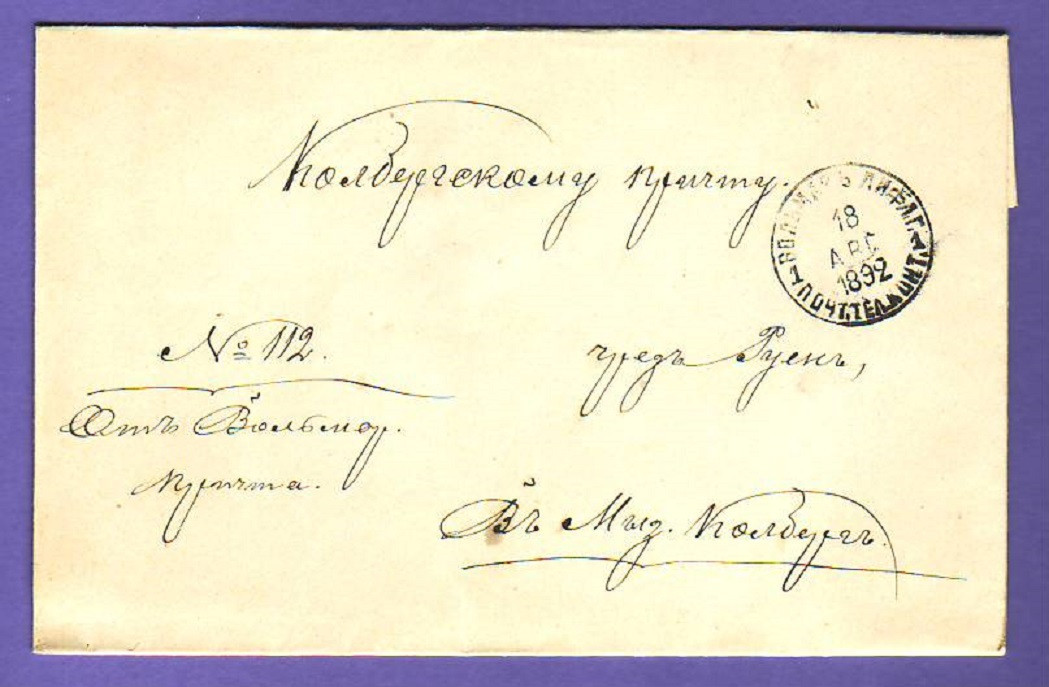 Колбергскому причту.
ВОЛЬМАРЪ ЛИФЛ.Г.
18
АВГ
1892
1 ПОЧТ.ТЕЛ.КОНТ. 1
№ 112.
чрезъ Руенъ,
Отъ Вольмар.
причта.
Въ Мыз. Колбергъ.